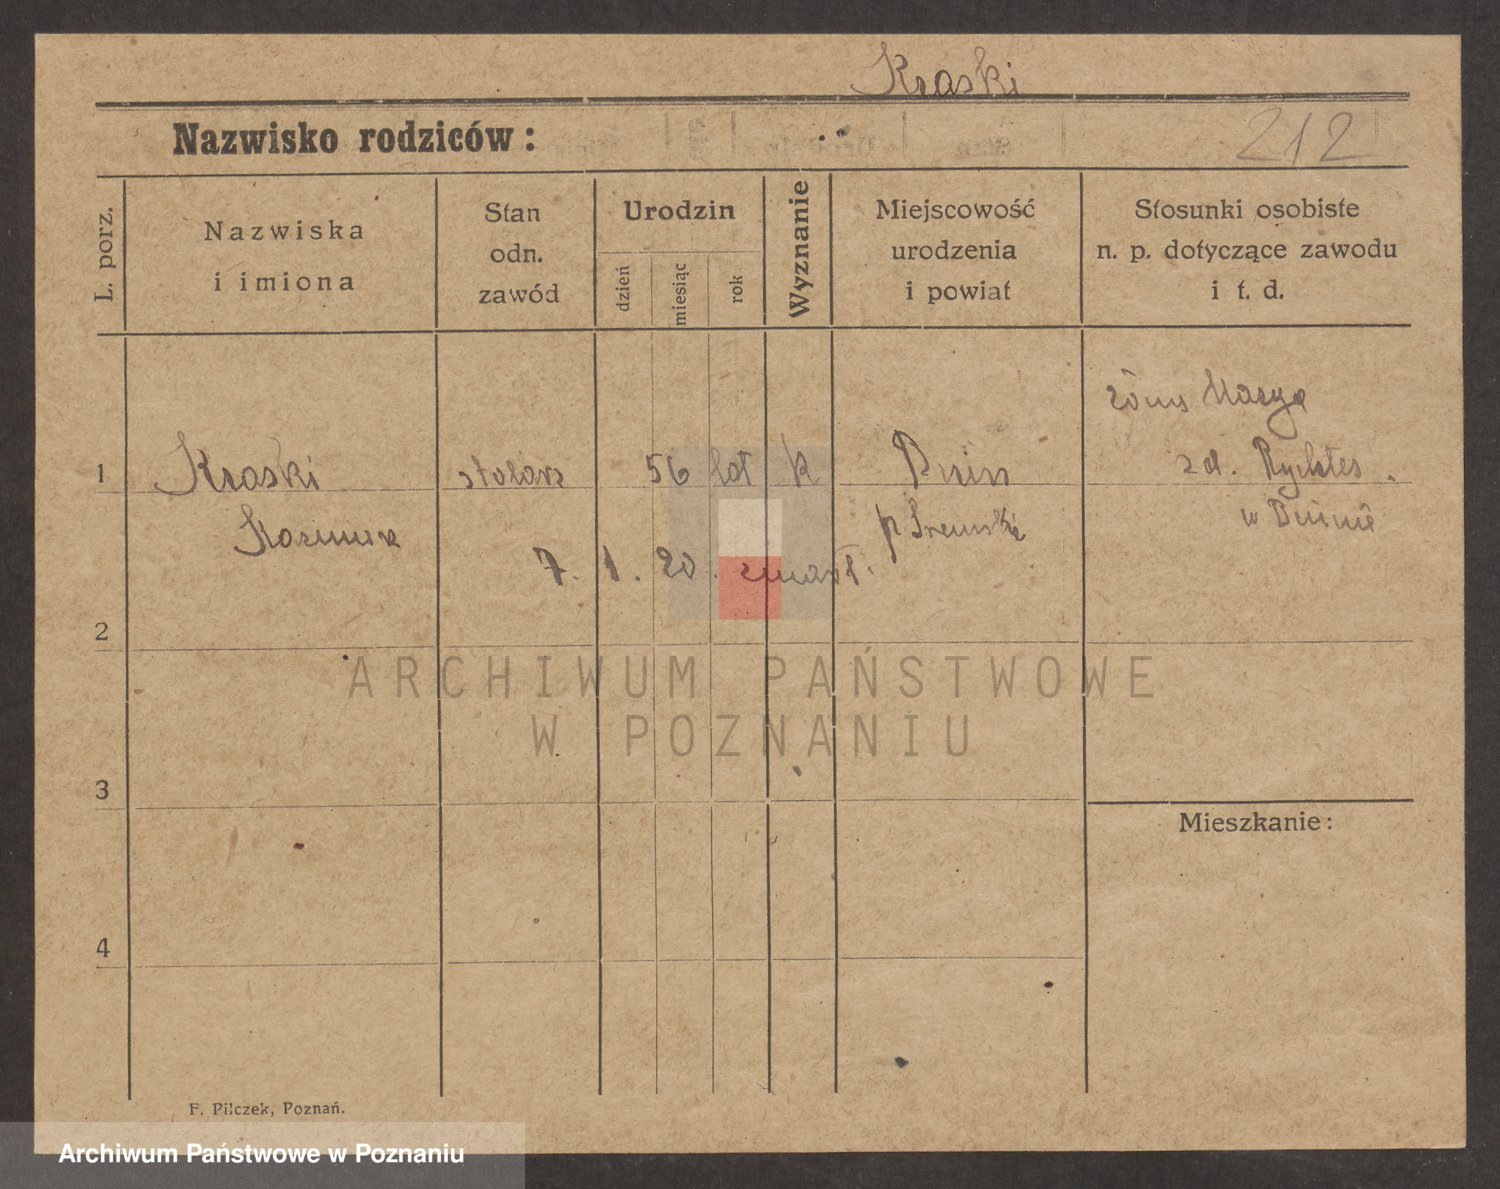 Kraski
Nazwisko rodziców:
212
L. porz.
Nazwiska
i imiona
Stan
odn.
zawód
Urodzin
dzień
miesiąc
rok
Wyznanie
Miejscowość
urodzenia
i powiat
Stosunki osobiste
n. p. dotyczące zawodu
i t. d.
1
Kraski
stolarz
56 lat
k
Bnin
p Śremski
żona Marya
zd.
w Bninie
7. 1. 20. zmarł.
2
3
4
ARCHIWUM PAŃSTWOWE
W POZNANIU
Mieszkanie:
F. Pilczek, Poznań.
Archiwum Państwowe w Poznaniu